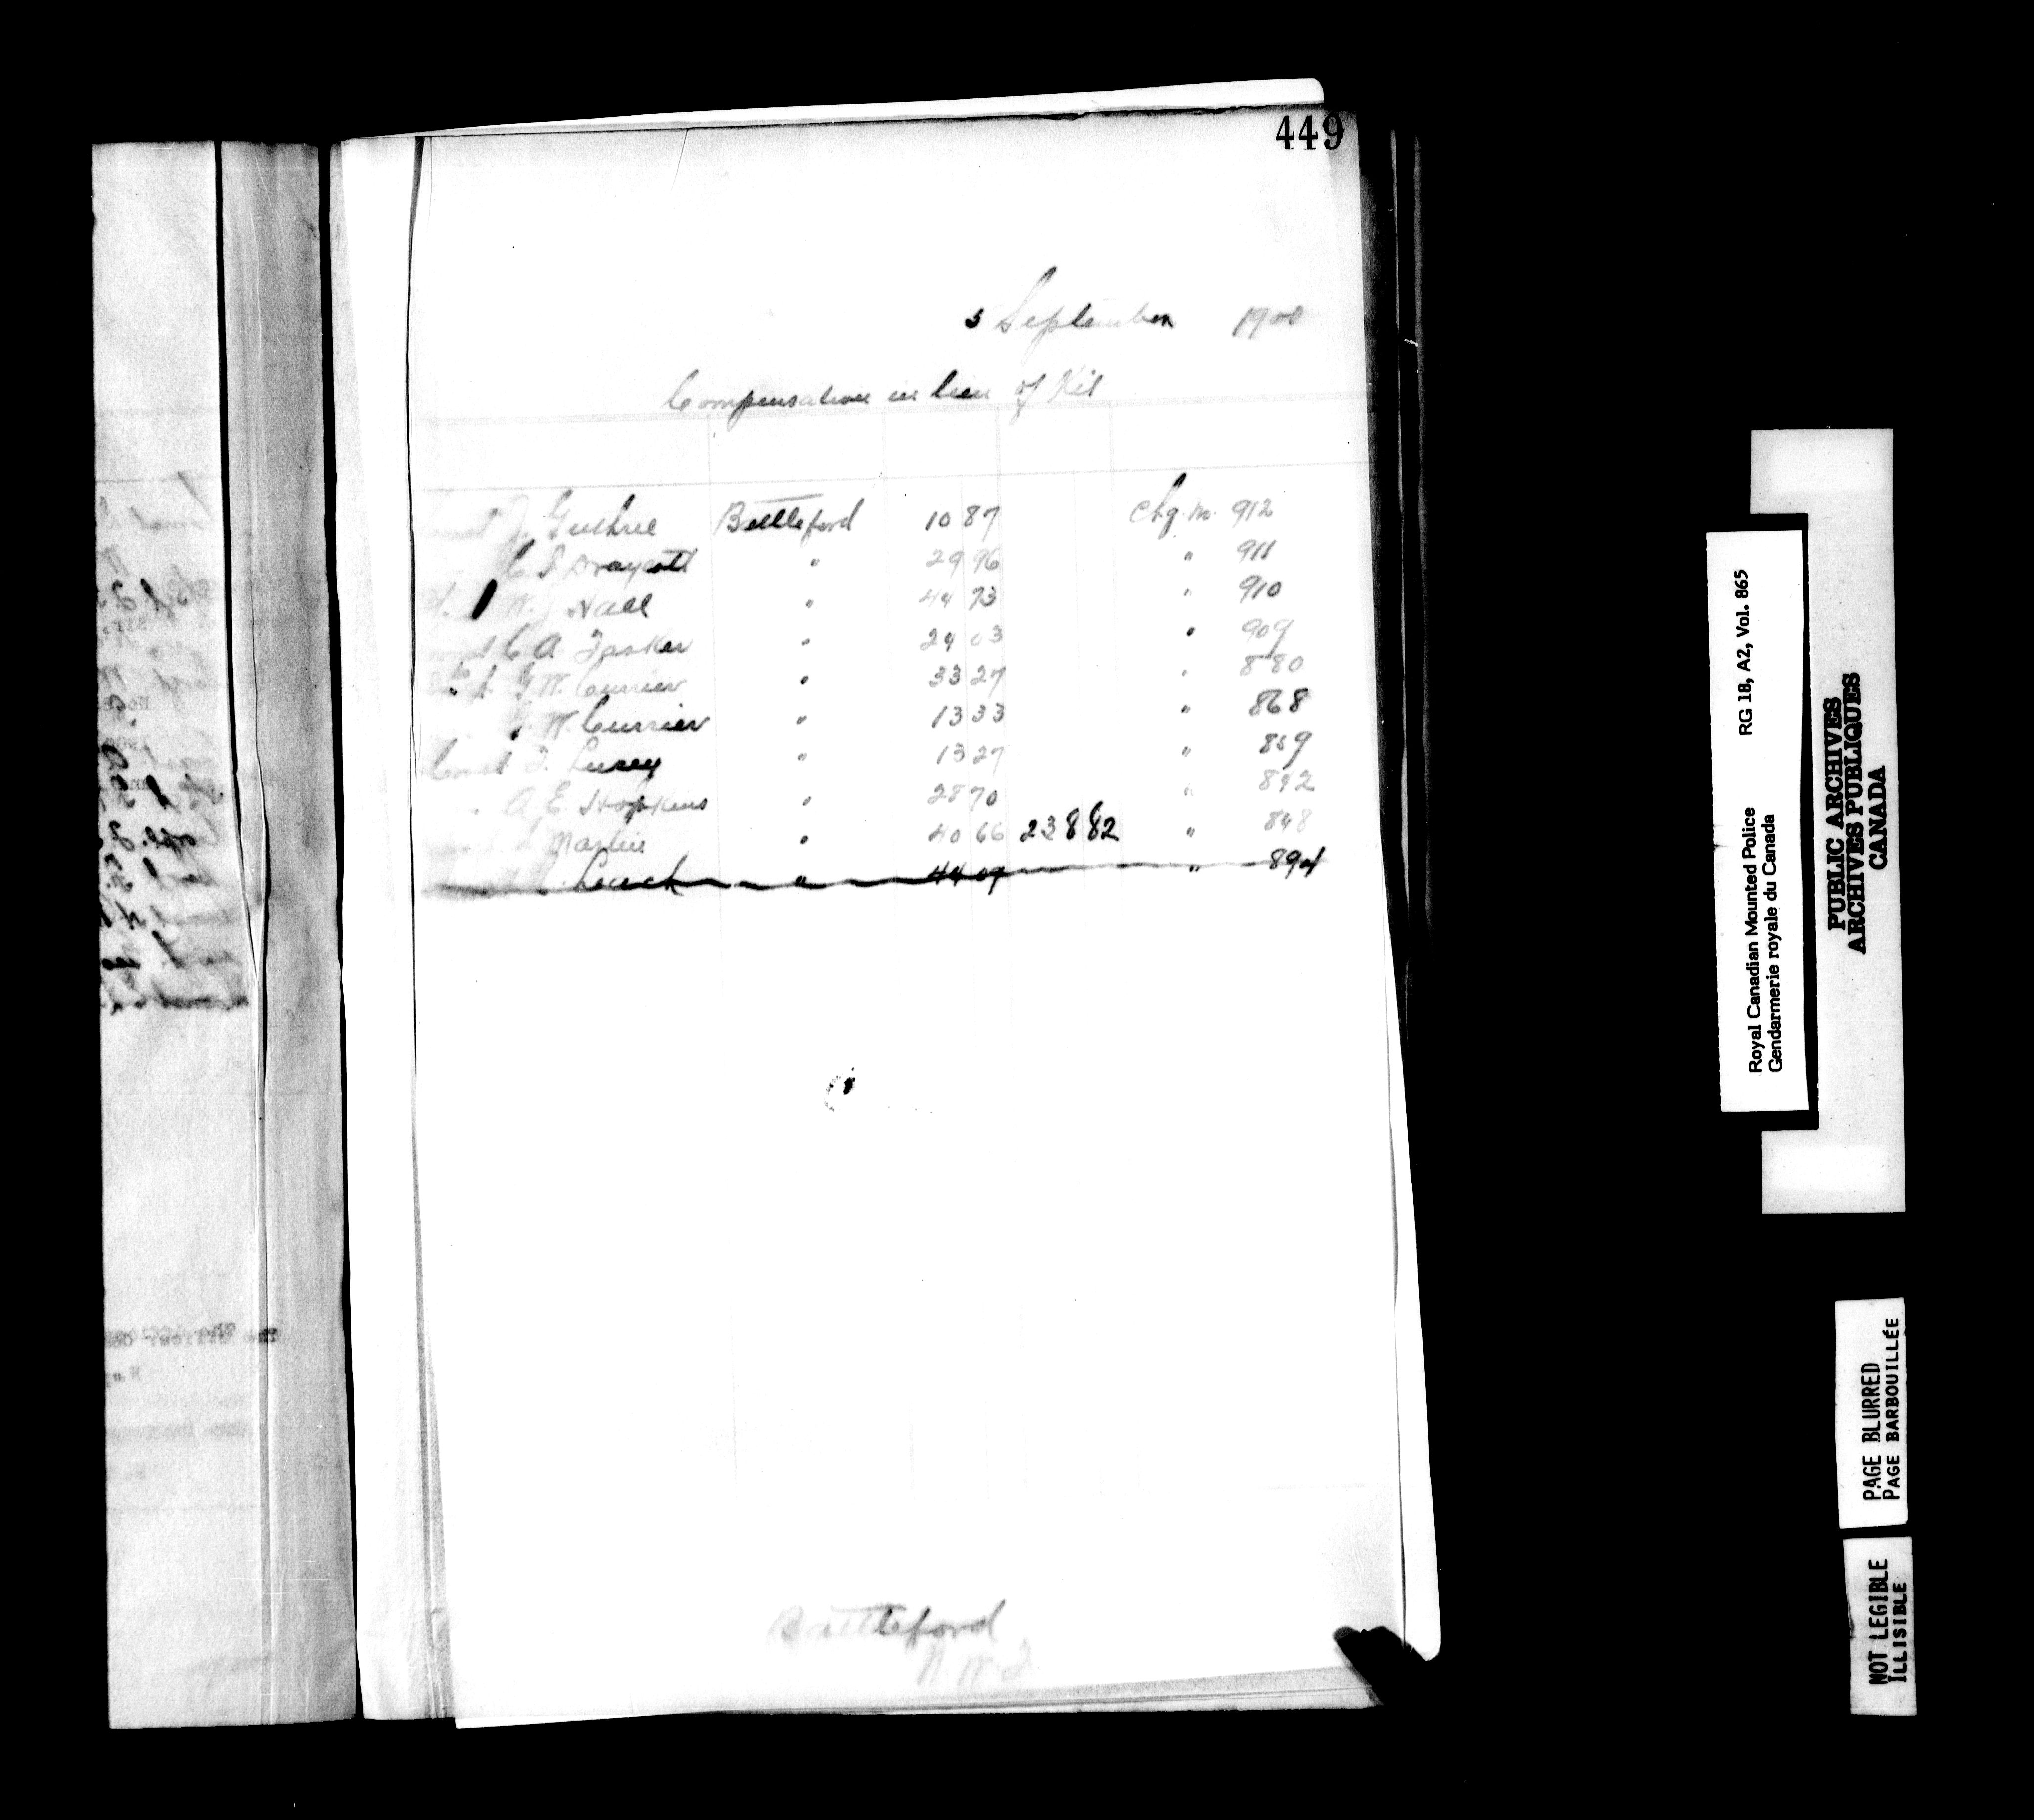 449
5 September 1900
Compensation in lieu of Kit
Const J. Guthrie Battleford 10 87 Chq. No. 912
C. S. Draycott " 29 96 " 911
W. J. Hall " 44 73 " 910
Const C. A. Tasker " 24 03 " 909
G. W. Currier " 33 27 " 880
W. Currier " 13 33 " 868
Const T. Lucey " 13 27 " 859
" A. E. Hopkins " 28 70 " 892
Martin " 40 66 238 82 " 848
Leach " 44 09 " 894
Battleford
N. W. T.
Royal Canadian Mounted Police RG 18, A2, Vol. 865
Gendarmerie royale du Canada
PUBLIC ARCHIVES
ARCHIVES PUBLIQUES
CANADA
PAGE BLURRED
PAGE BARBOUILLÉE
NOT LEGIBLE
ILLISIBLE